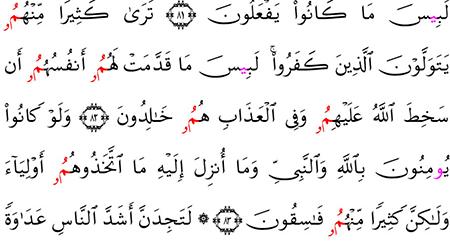 لَبِيسَ مَا كَانُوا۟ يَفْعَلُونَ ۝٨١ تَرَىٰ كَثِيرًا مِّنْهُمُۥ
يَتَوَلَّوْنَ ٱلَّذِينَ كَفَرُوا۟ۚ لَبِيسَ مَا قَدَّمَتْ لَهُمُۥٓ أَنفُسُهُمُۥٓ أَن
سَخِطَ ٱللَّهُ عَلَيْهِمُۥ وَفِى ٱلْعَذَابِ هُمُۥ خَـٰلِدُونَ ۝٨٢ وَلَوْ كَانُوا۟
يُومِنُونَ بِٱللَّهِ وَٱلنَّبِىِّ وَمَآ أُنزِلَ إِلَيْهِ مَا ٱتَّخَذُوهُمُۥٓ أَوْلِيَآءَ
وَلَـٰكِنَّ كَثِيرًا مِّنْهُمُۥ فَـٰسِقُونَ ۝٨٣ ۞ لَتَجِدَنَّ أَشَدَّ ٱلنَّاسِ عَدَٰوَةً